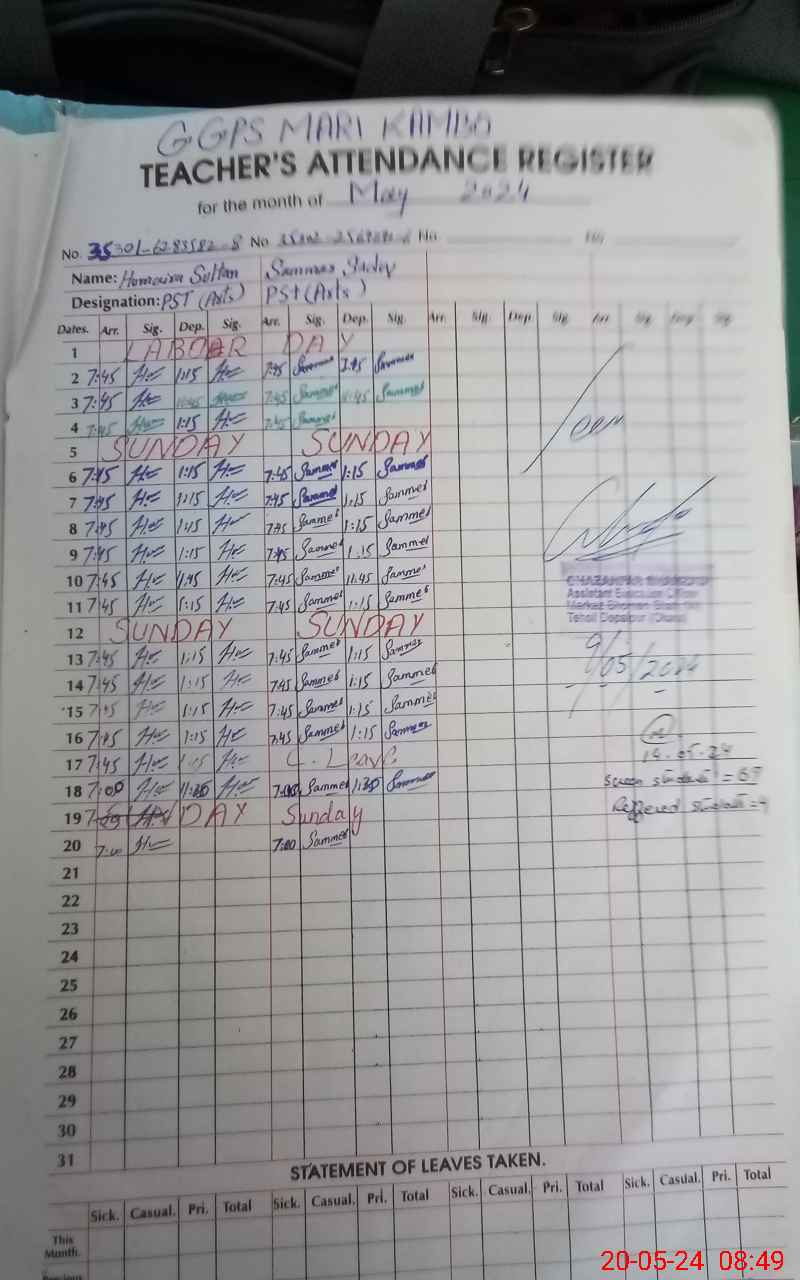 GGPS MARI KAMBO
TEACHER'S ATTENDANCE REGISTER
for the month of May 2024
No. 35301-6283582-8 No No.
Name: Humaira Sultan
Designation: PST (Arts) PST (Arts)
Dates. Arr. Sig. Dep. Sig. Arr. Sig. Dep. Sig. Arr. Sig. Dep. Sig. Arr Sig Dep Sig
1 LABOUR DAY
2 7:45 1:15 7:45
3 7:45 11:45 7:45 Sammer 11:45 Sammer
4 7:45 1:15 7:45 Sammer
5 SUNDAY SUNDAY
6 7:45 1:15 7:45 Sammer 1:15 Sammer
7 7:45 1:15 7:45 Sammer 1:15 Sammer
8 7:45 1:15 7:45 Sammer 1:15 Sammer
9 7:45 1:15 7:45 Sammer 1:15 Sammer
10 7:45 11:45 7:45 Sammer 11:45 Sammer
11 7:45 1:15 7:45 Sammer 1:15 Sammer
12 SUNDAY SUNDAY
13 7:45 1:15 7:45 Sammer 1:15 Sammer
14 7:45 1:15 7:45 Sammer 1:15 Sammer
15 7:45 1:15 7:45 Sammer 1:15 Sammer
16 7:45 1:15 7:45 Sammer 1:15 Sammer
17 7:45 C. Leave
18 7:00 11:30 7:00 Sammer 11:30 Sammer
19 SUNDAY Sunday
20 7:00 7:00 Sammer
21
22
23
24
25
26
27
28
29
30
31
Seen
Assistant Education Officer
Tehsil Depalpur (Okara)
9/05/2024
14-05-24
Screen students = 67
Reffered students = 4
STATEMENT OF LEAVES TAKEN.
Sick. Casual. Pri. Total Sick. Casual. Pri. Total Sick. Casual. Pri. Total Sick. Casual. Pri. Total
This
Month.
Previous
20-05-24 08:49